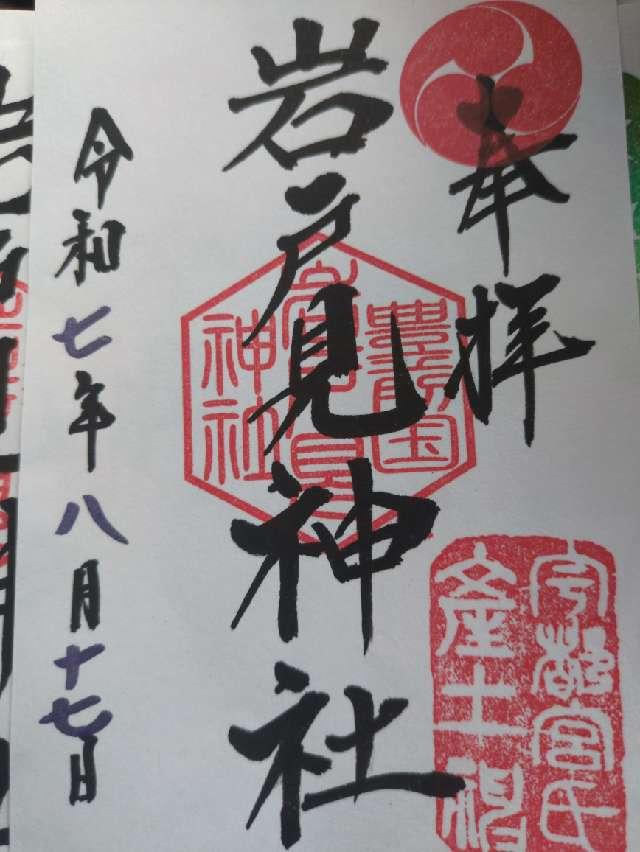 奉拝
岩戸見神社
豊前国
岩戸見
神社
宇都宮氏
産土神
令和七年八月十七日